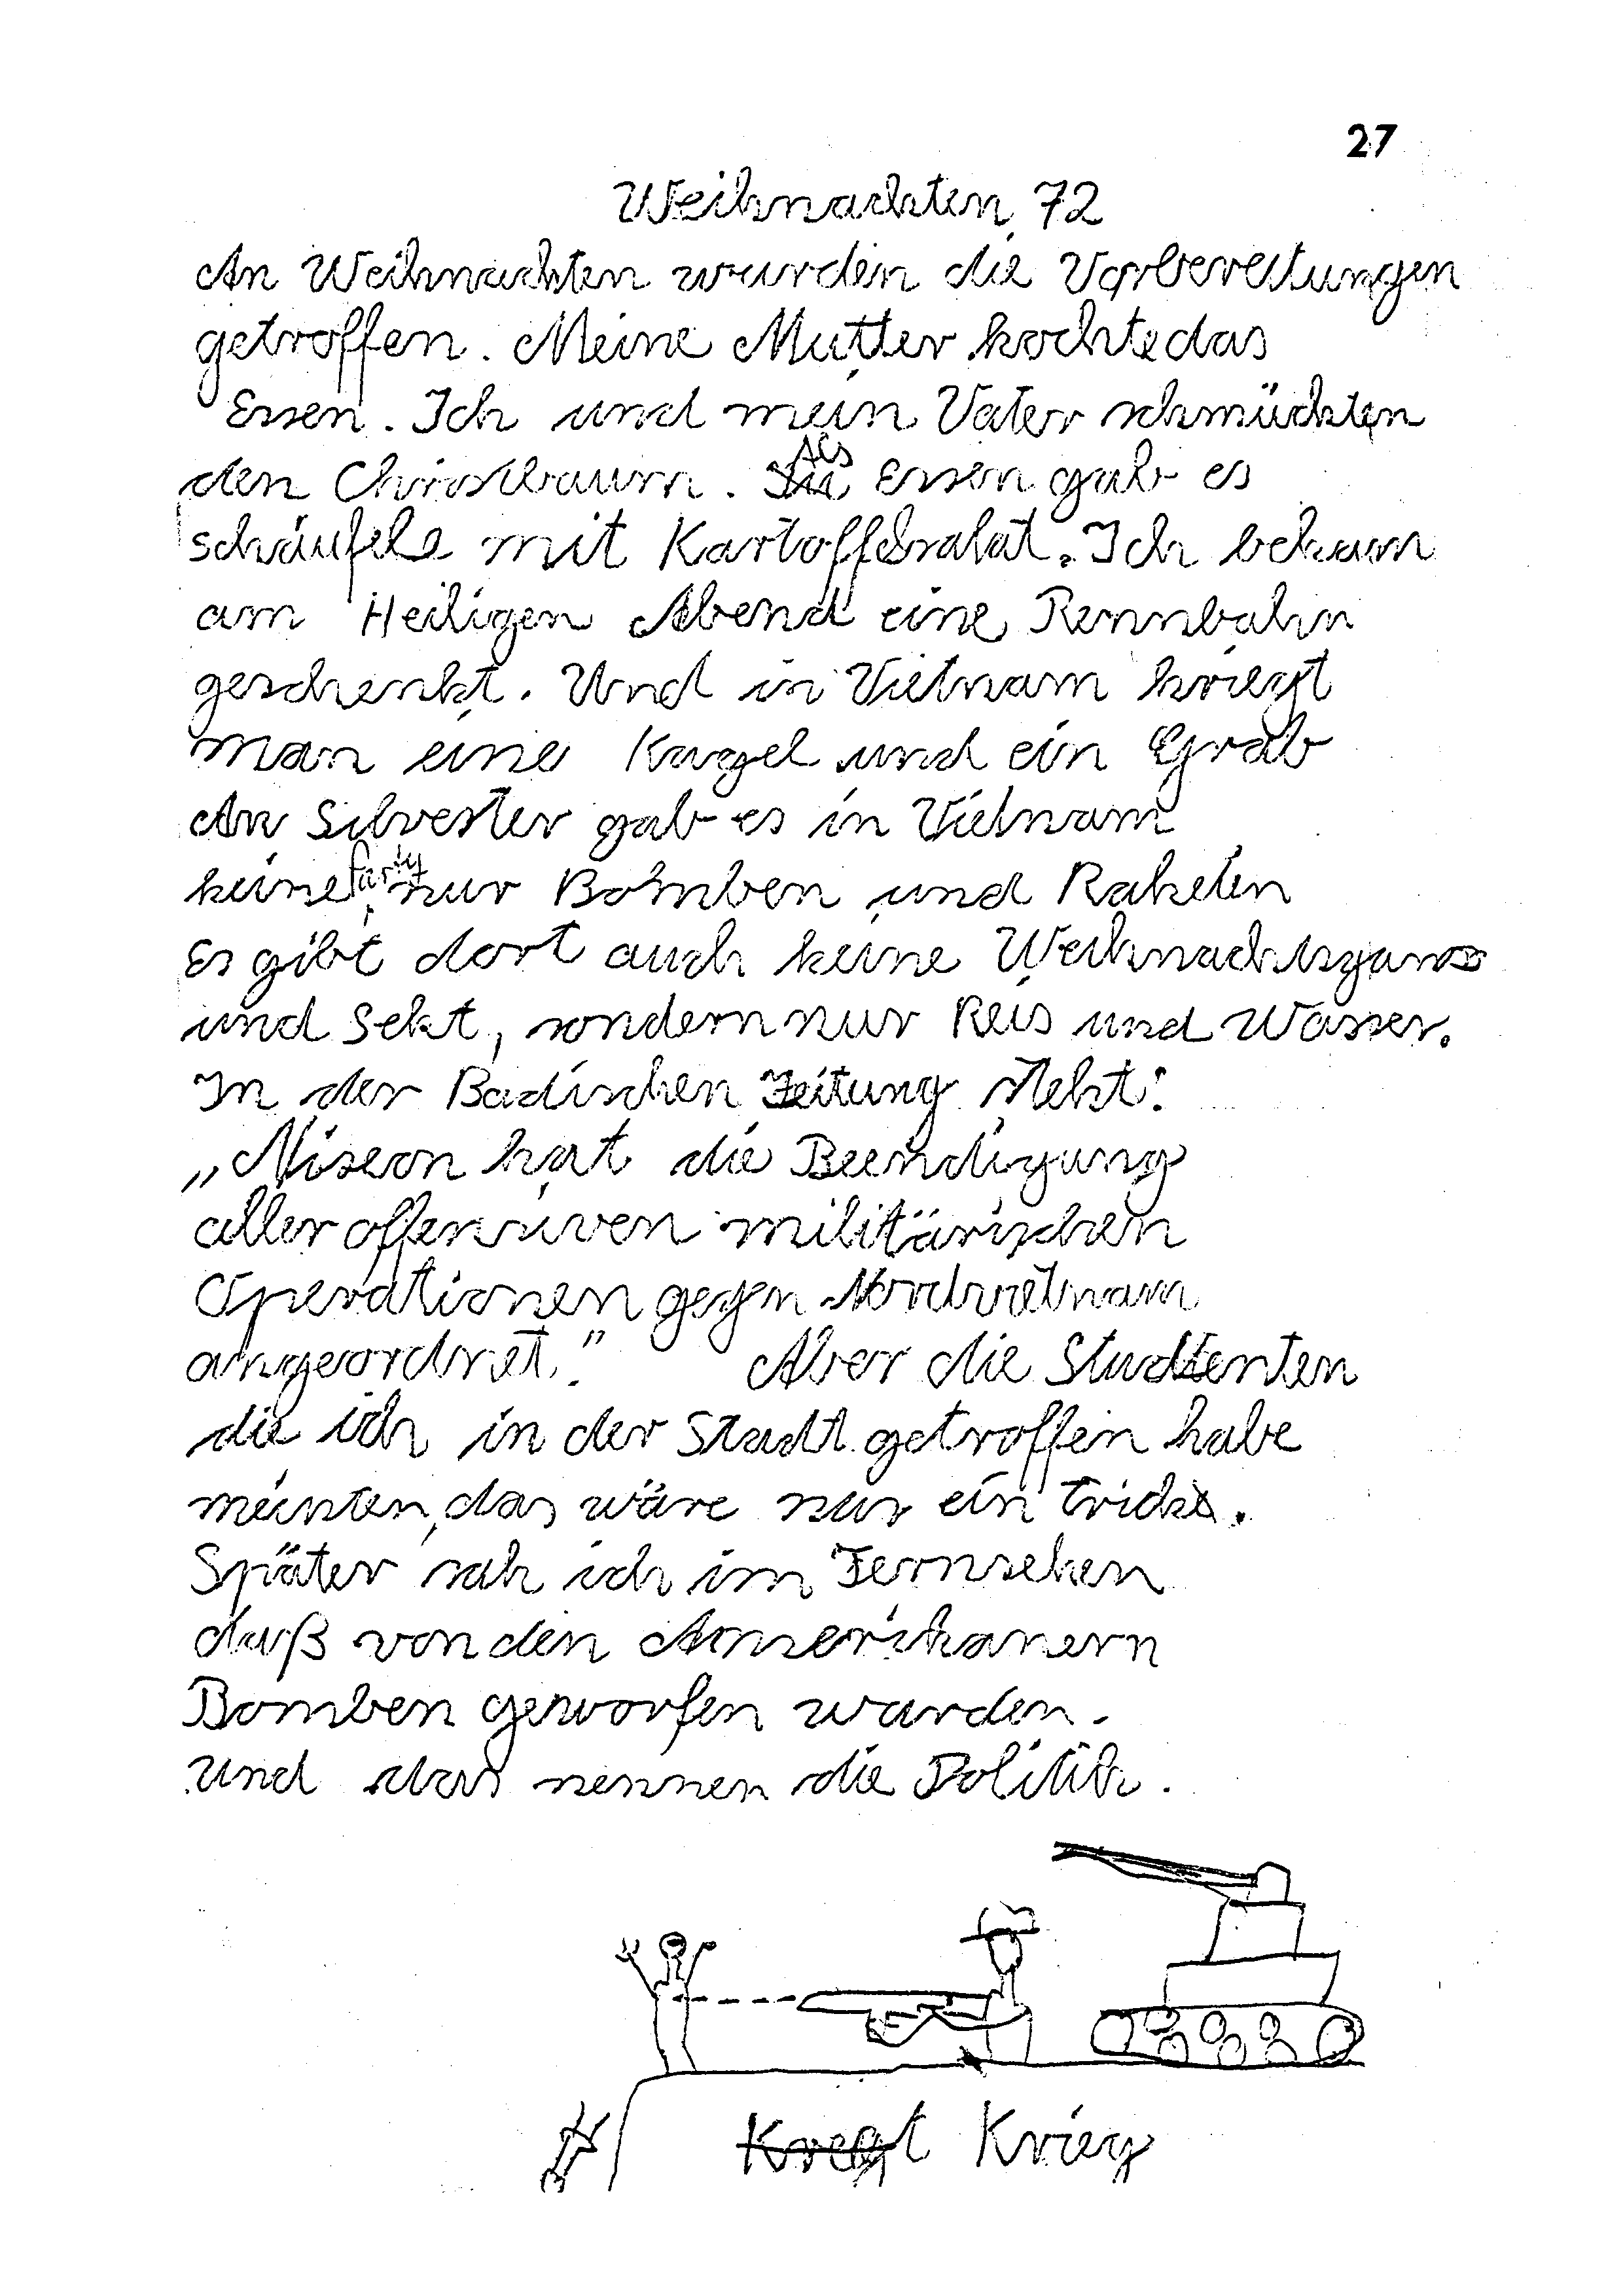 27
Weihnachten 72
An Weihnachten wurden die Vorbereitungen
getroffen. Meine Mutter kochte das
Essen. Ich und mein Vater schmückten
den Christbaum. Als Essen gab es
schäufele mit Kartoffelsalat. Ich bekam
am Heiligen Abend eine Rennbahn
geschenkt. Und in Vietnam kriegt
man eine Kugel und ein Grab
An Silvester gab es in Vietnam
keine party, nur Bomben und Raketen
Es gibt dort auch keine Weihnachtsgans
und Sekt, sondern nur Reis und Wasser.
In der Badischen Zeitung steht:
„Nixon hat die Beendigung
aller offensiven militärischen
Operationen gegen Nordvietnam
angeordnet." Aber die Studenten
die ich in der Stadt getroffen habe
meinten, das wäre nur ein trick.
Später sah ich im Fernsehen
daß von den Amerikanern
Bomben geworfen wurden.
Und das nennen die Politik.
Kregt Krieg